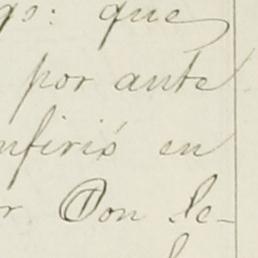 gs: que
por ante
nfirió en
r Don le-